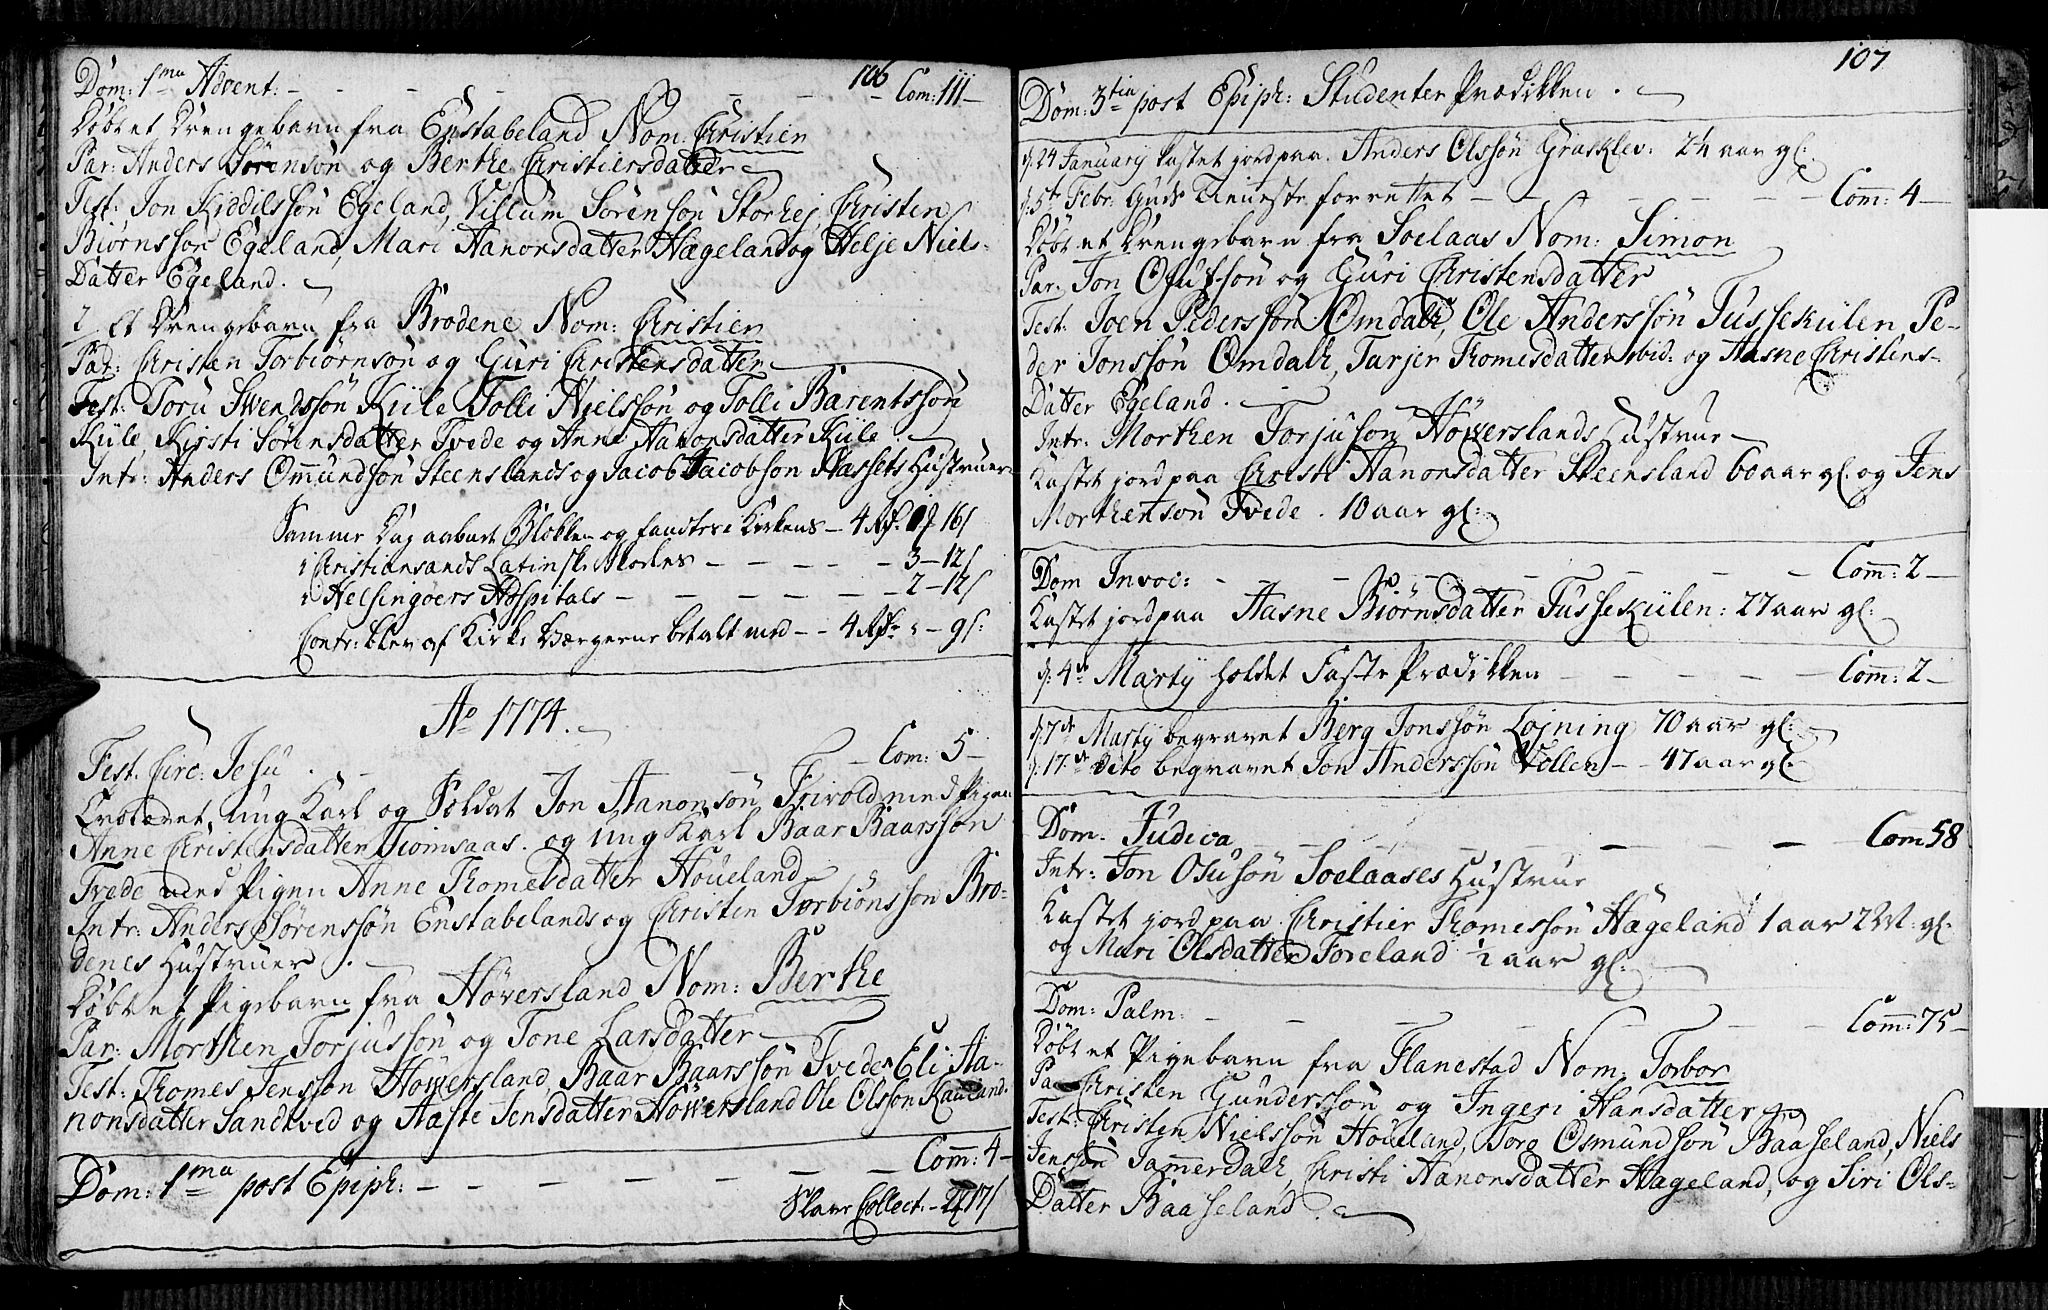 106
Dom: 1ma Advent: - - - - - - - Com: 111 -
Døbt et Drengebarn fra Enstabeland Nom. Christien
Par: Anders Sörensön og Berthe Christiersdatter
Test: Jon Kiddilssön Egeland, Villum Sörensön Storhej, Christen
Biörnssön Egeland, Mari Aanonsdatter Hægeland og Helje Niels-
Datter Egeland.
2 Et Drengebarn fra Brodene Nom: Christien
Par: Christen Torbiörnsön og Guri Christensdatter
Test: Toru Swendssön Küle Tolli Nielssön og Tolli Barentssön
Küle, Kirsti Sörensdatter Tvede og Anne Aanonsdatter Küle.
Intr: Anders Omundsön Steenslands og Jacob Jacobsön Aassets Hustruer
Samme Dag aabnet Blokken og fandtes i Kirkens - 4 Rd. 16 s
i Christiansands Latinske Skoeles - - - - - 3 - 12 s
i Helsingøers Hospitals - - - - - - 2 - 12 s
Contr: blev af Kirke Værgerne betalt med - - 4 Rd. - 9 s:
Ao 1774.
Fest. Circ: Jesu. - - - - - Com: 5 -
Trolovet, ung Karl og Soldat Jon Aanonsön Frivold med Pigen
Anne Christensdatter Tiomsaas. og ung Karl Baar Baarssön
Tvede med Pigen Anne Thomesdatter Houeland
Intr: Anders Sörenssön Enstabelands og Christen Torbiönssön Bro-
denes Hustruer.
Døbt et Pigebarn fra Höversland Nom: Berthe
Par: Morthen Torjussön og Tone Larsdatter
Test: Thomes Jenssön Höwersland, Baar Baarssön Tvede, Eli Aa-
nonsdatter Sandtved og Aaste Jensdatter Höwersland Ole Olssön Kauland.
Dom: 1ma post Epiph: - - - - - - - Com: 4 -
Slave Collect: - 17 s
107
Dom: 3tia post Epiph: Studenter Prædikken.
d: 24 January kastet jord paa. Anders Olssön Græsklev: 24 aar gl:
d: 5te Febr: Guds Tieneste forrettet - - - - - Com: 4 -
Døbt et Drengebarn fra Soelaas Nom: Simon
Par: Jon Osufssön og Guri Christensdatter
Test: Joen Pederssön Omdalh, Ole Anderssön Tussekülen, Pe-
der Jonssön Omdalh, Tarjer Thomesdatter ibid: og Aasne Christens-
Datter Egeland.
Intr: Morthen Torjusön Höwerslands Hustrue
Kastet jord paa Christi Aanonsdatter Steensland 60 aar gl. og Jens
Morthensön Tvede. 10 aar gl:
Dom Invoc: - - - - - - - Com: 2 -
Kastet jord paa Aasne Biörnsdatter Tussekülen: 27 aar gl:
d: 4de Marty holdet Faste Prædikken - - - - - Com: 2 -
d: 7de Marty begravet Berg Jonssön Löjning 70 aar gl:
d: 17de dito begravet Jon Anderssön Vollen - - 47 aar gl:
Dom. Judica - - - - - - - Com 58
Intr: Jon Osusön Soelaases Hustrue
Kastet jord paa Christier Thomessön Hægeland 1 aar 2 M: gl:
og Mari Olsdatter Foreland ½ aar gl:
Dom: Palm: - - - - - - - Com: 75 -
Døbt et Pigebarn fra Flanestad Nom: Torbor
Pa Christen Gunderssön og Ingeri Hansdatter
Test: Christen Nielssön Houeland, Torg Osmundssön Baaseland, Niels
Jenssön Jammerdalh, Christi Aanonsdatter Hægeland, og Siri Ols-
Datter Baaseland.